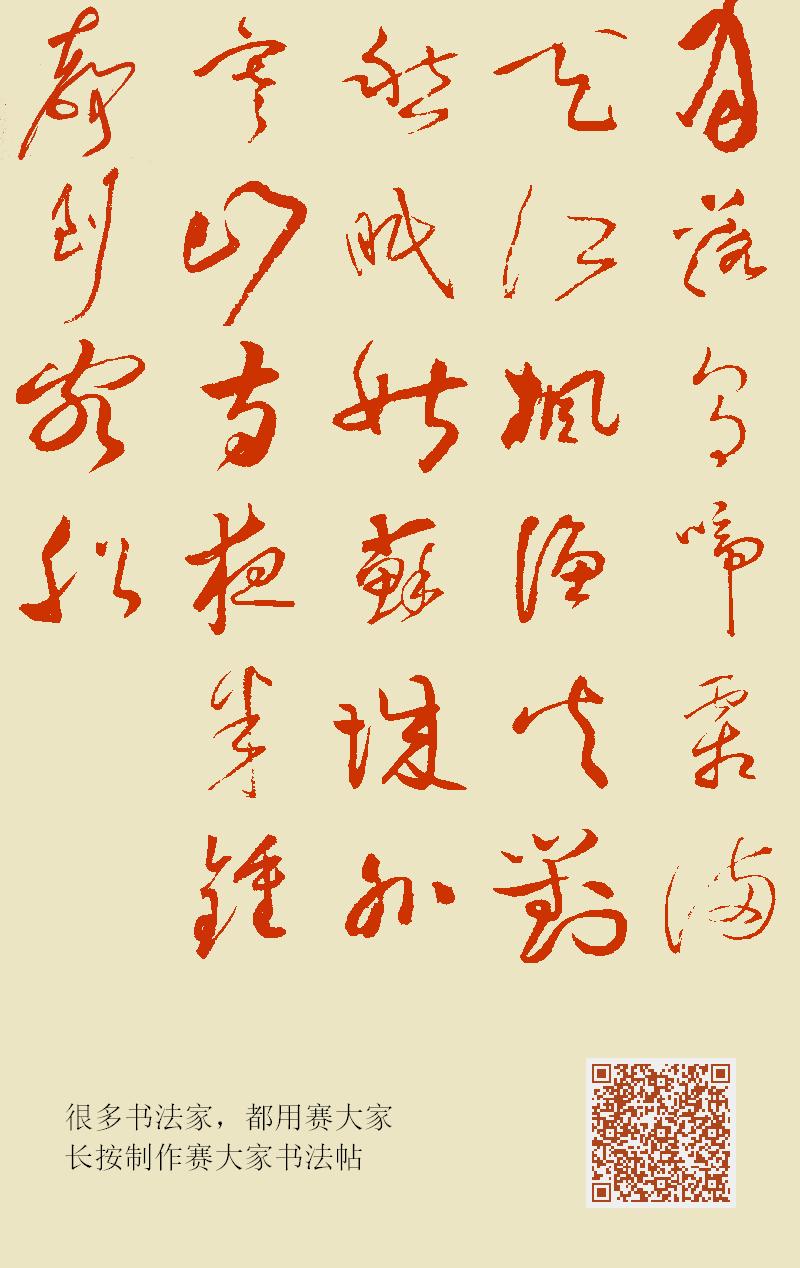 月落烏啼霜滿
天江楓漁火對
愁眠姑蘇城外
寒山寺夜半鍾
聲到客船
很多书法家，都用赛大家
长按制作赛大家书法帖